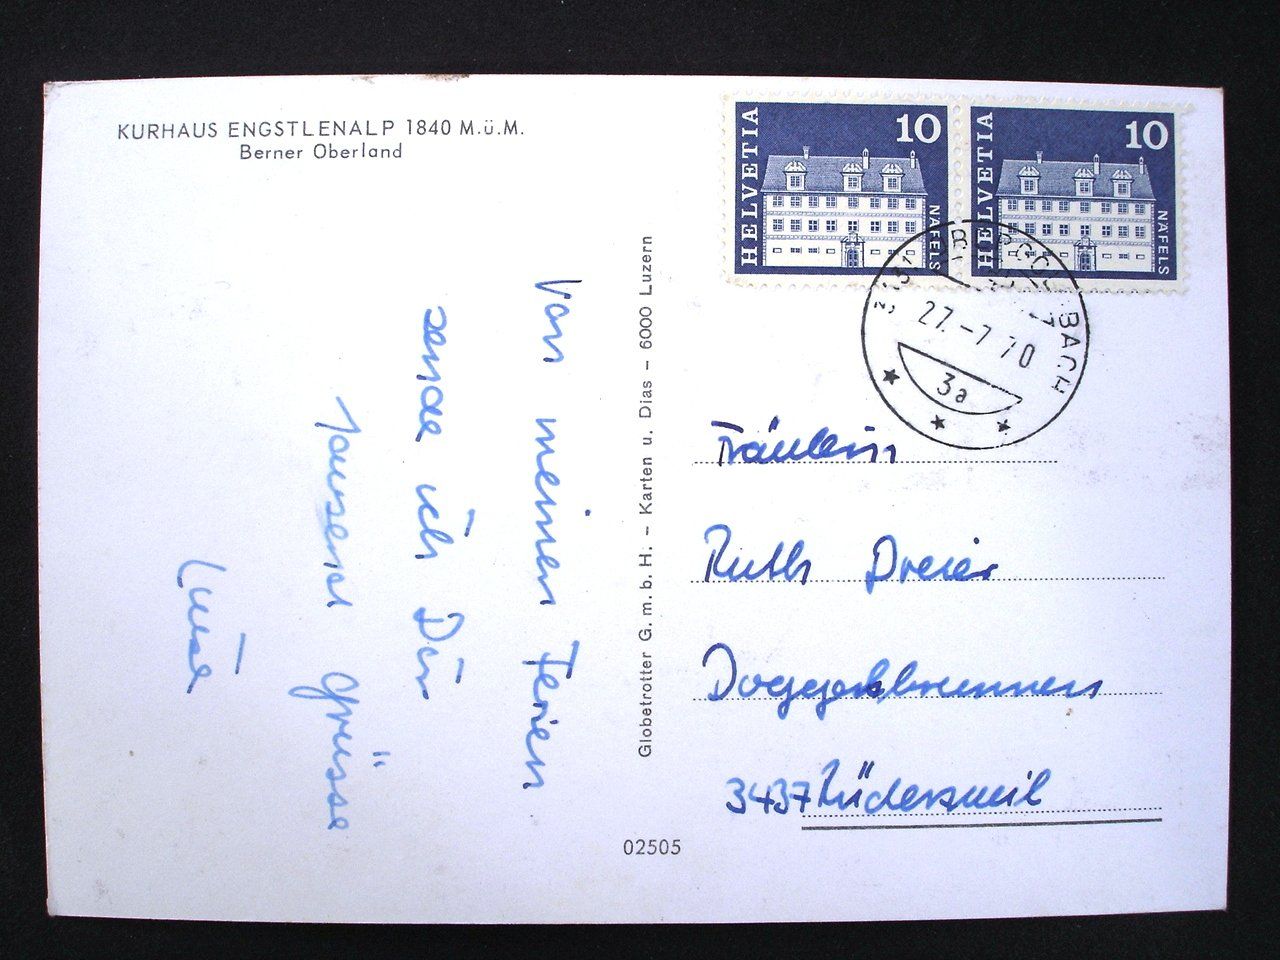 KURHAUS ENGSTLENALP 1840 M.ü.M.
Berner Oberland
Von meinen Ferien
sende ich Dir
tausend Grüsse
Luise
Globetrotter G.m.b.H. – Karten u. Dias – 6000 Luzern
02505
HELVETIA 10 NÄFELS
HELVETIA 10 NÄFELS
BACH
27.-7 70
3a
Fräulein
Ruth Dreier
Doggelbrunnen
3437 Rüderswil